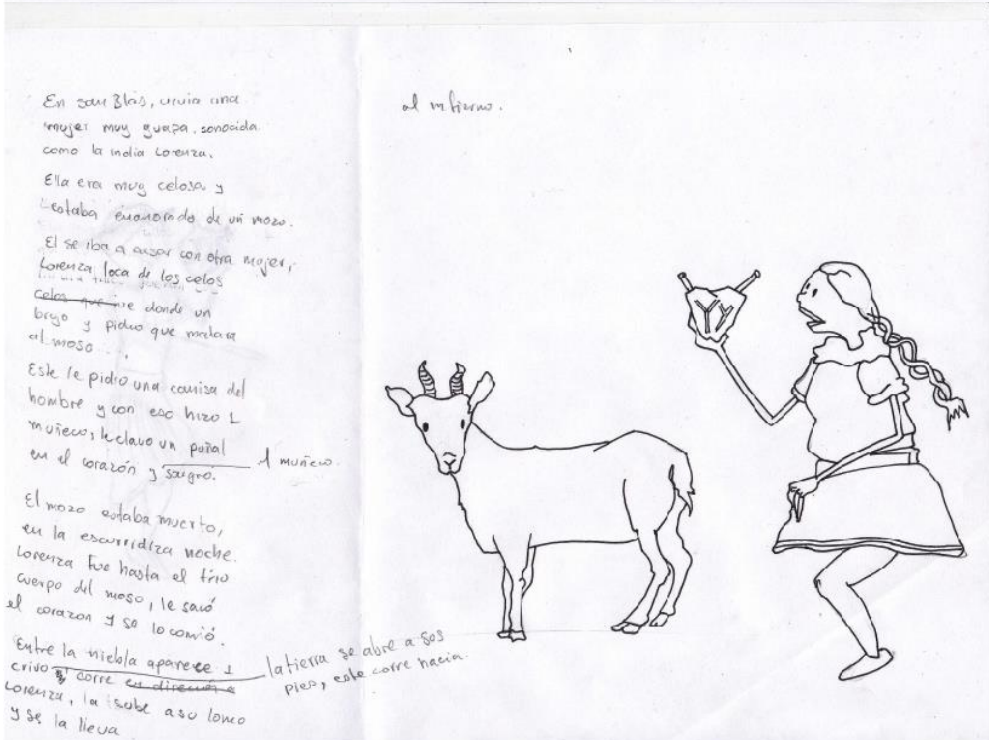 En san Blas, vivia una
mujer muy guapa, conocida
como la india Lorenza.
Ella era muy celosa y
estaba enamorada de un mozo.
El se iba a casar con otra mujer,
Lorenza loca de los celos
celos que ire donde un
brujo y pidio que matara
al moso....
Este le pidio una camisa del
hombre y con eso hizo 1
muñeco, le clavo un puñal
en el corazón y sangro. 1 muñeco.
El mozo estaba muerto,
en la escurridiza noche.
Lorenza fue hasta el frio
cuerpo del moso, le sacó
el corazon y se lo comió.
Entre la niebla aparece 1
crivo y corre en direccion a
Lorenza, la isube a su lomo
y se la lleva
la tierra se abre a sus
pies, este corre hacia
al infierno.